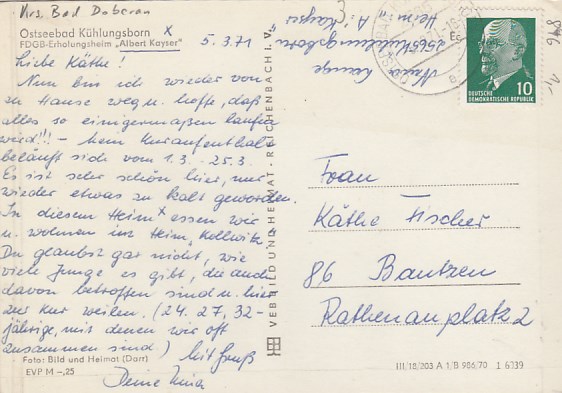 Krs. Bad Doberan
Ostseebad Kühlungsborn x
FDGB-Erholungsheim „Albert Kayser"
5.3.71
Liebe Käthe!
Nun bin ich wieder von
zu Hause weg u. hoffe, daß
alles so einigermaßen laufen
wird!!! – Mein Kuraufenthalt
beläuft sich vom 1.3. - 25.3.
Es ist sehr schön hier, nur
wieder etwas zu kalt geworden.
In diesem Heim x essen wir
u. wohnen im Heim, Kollwitz
Du glaubst gar nicht, wie
viele Junge es gibt, die auch
davon betroffen sind u. hier
zur Kur weilen. (24. 27, 32-
jährige, mit denen wir oft
zusammen sind) Mit Gruß
Deine
Foto: Bild und Heimat (Darr)
EVP M –,25
VEB BILD UND HEIMAT · REICHENBACH I. V.
2565 Kühlungsborn
Heim: „A. Kayser"
DEUTSCHE
DEMOKRATISCHE REPUBLIK
10
Frau
Käthe Fischer
86 Bautzen
Rathenauplatz 2
III/18/203 A 1/B 986/70 1 6339